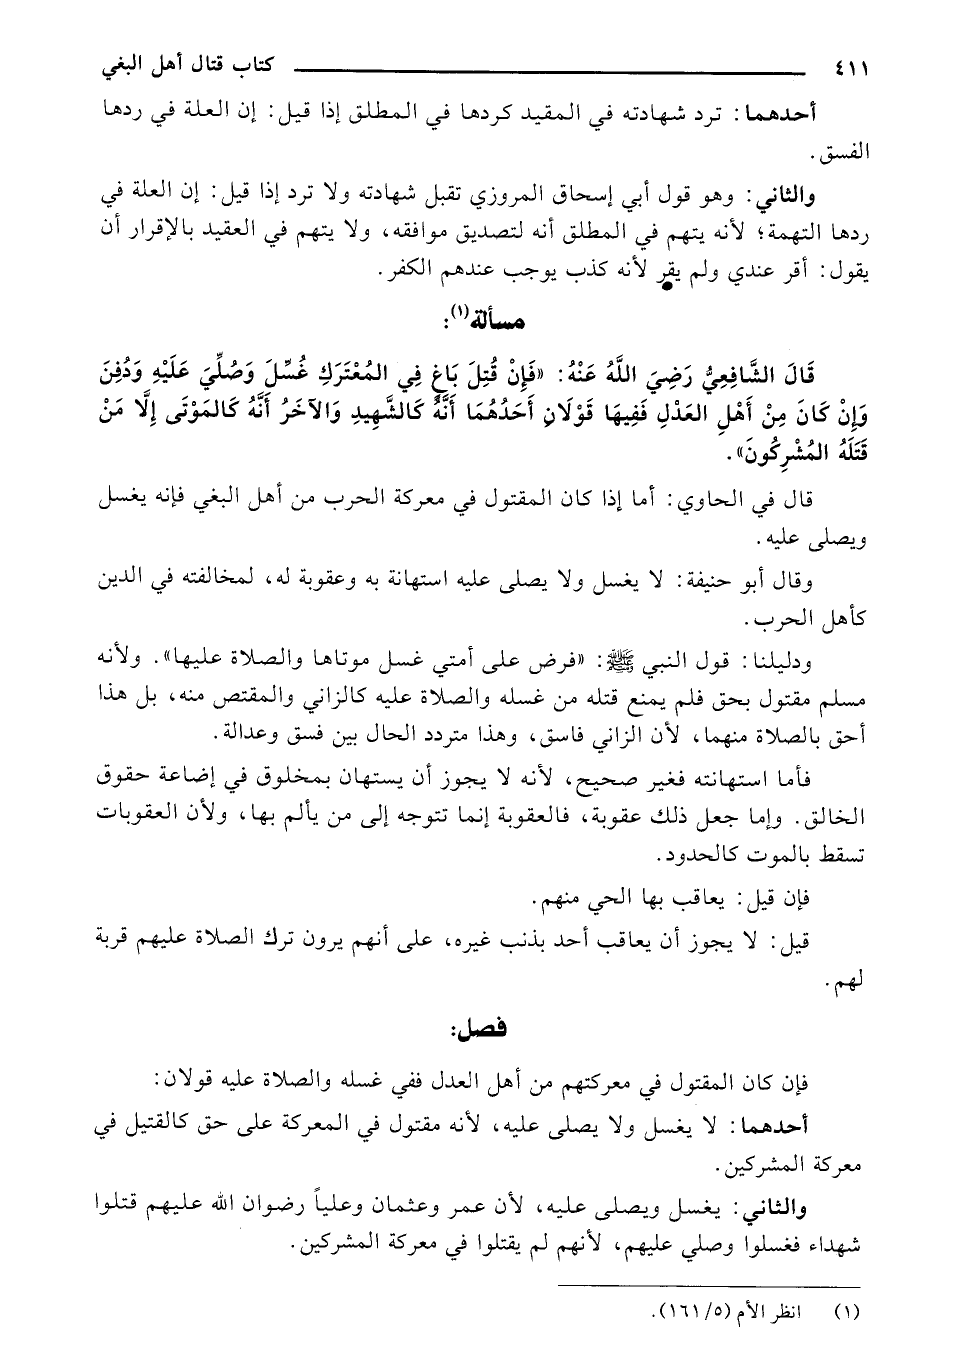 ٤١١ كتاب قتال أهل البغي
أحدهما: ترد شهادته في المقيد كردها في المطلق إذا قيل: إن العلة في ردها
الفسق.
والثاني: وهو قول أبي إسحاق المروزي تقبل شهادته ولا ترد إذا قيل: إن العلة في
ردها التهمة؛ لأنه يتهم في المطلق أنه لتصديق موافقه، ولا يتهم في العقيد بالإقرار أن
يقول: أقر عندي ولم يقر لأنه كذب يوجب عندهم الكفر.
مسألة(١):
قَالَ الشَّافِعِيُّ رَضِيَ اللَّهُ عَنْهُ: «فَإِنْ قُتِلَ بَاغٍ فِي المُعْتَرَكِ غُسِّلَ وَصُلِّيَ عَلَيْهِ وَدُفِنَ
وَإِنْ كَانَ مِنْ أَهْلِ العَدْلِ فَفِيهَا قَوْلَانِ أَحَدُهُمَا أَنَّهُ كَالشَّهِيدِ وَالآخَرُ أَنَّهُ كَالمَوْتَى إِلَّا مَنْ
قَتَلَهُ المُشْرِكُونَ».
قال في الحاوي: أما إذا كان المقتول في معركة الحرب من أهل البغي فإنه يغسل
ويصلى عليه.
وقال أبو حنيفة: لا يغسل ولا يصلى عليه استهانة به وعقوبة له، لمخالفته في الدين
كأهل الحرب.
ودليلنا: قول النبي ﷺ: «فرض على أمتي غسل موتاها والصلاة عليها». ولأنه
مسلم مقتول بحق فلم يمنع قتله من غسله والصلاة عليه كالزاني والمقتص منه، بل هذا
أحق بالصلاة منهما، لأن الزاني فاسق، وهذا متردد الحال بين فسق وعدالة.
فأما استهانته فغير صحيح، لأنه لا يجوز أن يستهان بمخلوق في إضاعة حقوق
الخالق. وإما جعل ذلك عقوبة، فالعقوبة إنما تتوجه إلى من يألم بها، ولأن العقوبات
تسقط بالموت كالحدود.
فإن قيل: يعاقب بها الحي منهم.
قيل: لا يجوز أن يعاقب أحد بذنب غيره، على أنهم يرون ترك الصلاة عليهم قربة
لهم.
فصل:
فإن كان المقتول في معركتهم من أهل العدل ففي غسله والصلاة عليه قولان:
أحدهما: لا يغسل ولا يصلى عليه، لأنه مقتول في المعركة على حق كالقتيل في
معركة المشركين.
والثاني: يغسل ويصلى عليه، لأن عمر وعثمان وعلياً رضوان الله عليهم قتلوا
شهداء فغسلوا وصلي عليهم، لأنهم لم يقتلوا في معركة المشركين.
(١) انظر الأم (٥/ ١٦١).